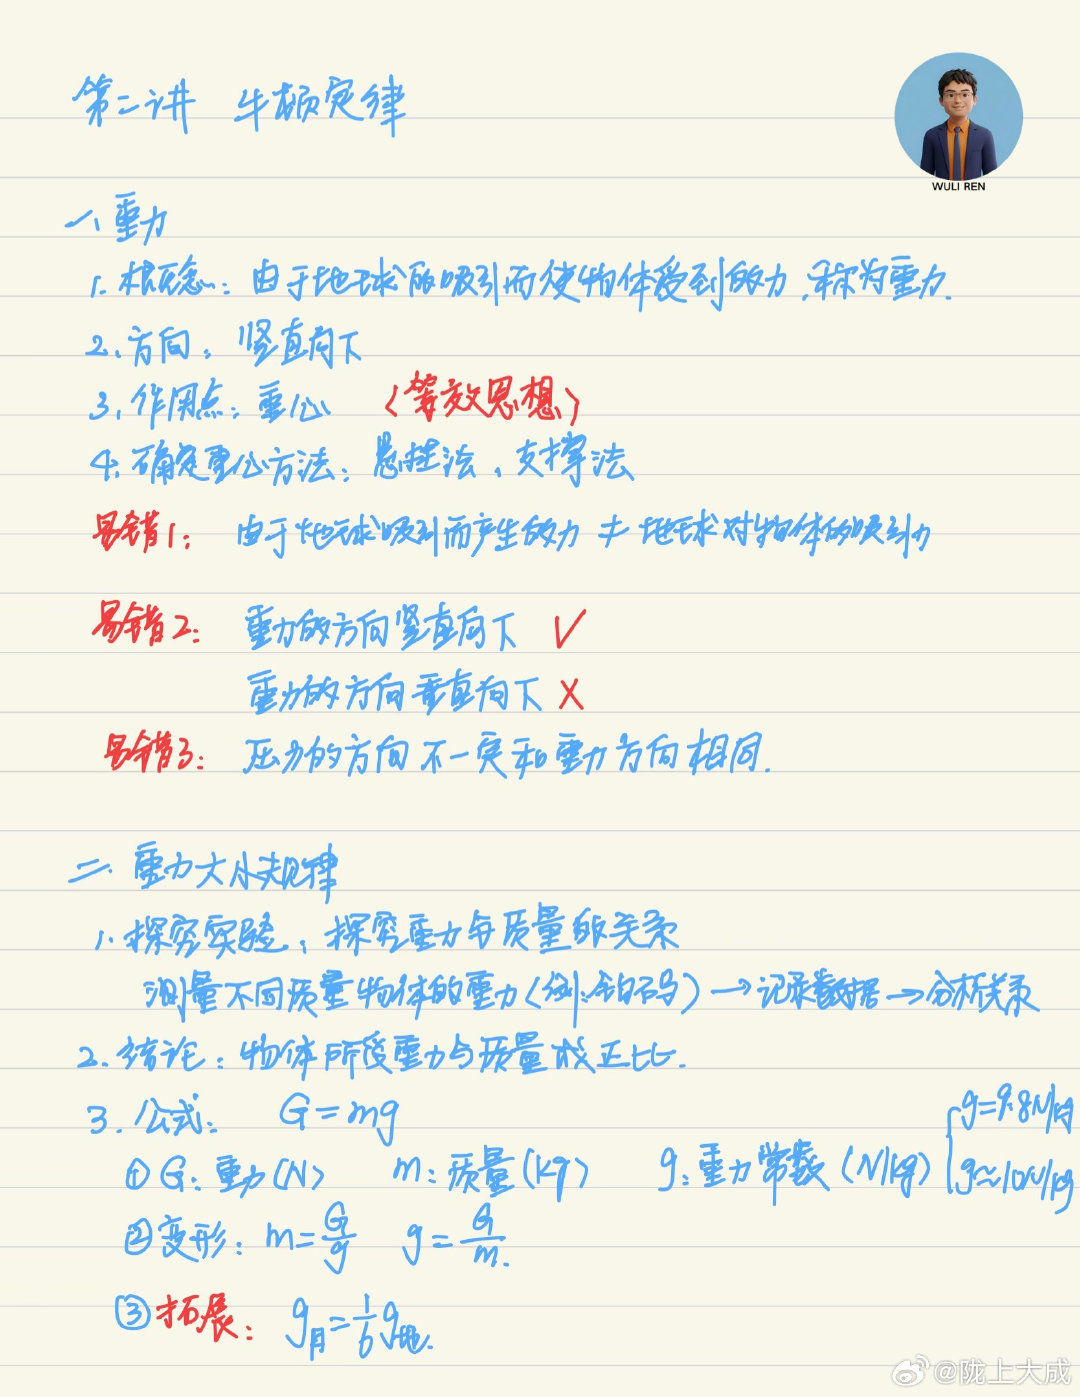 第二讲 牛顿定律
WULI REN
一、重力
1. 概念：由于地球的吸引而使物体受到的力，称为重力.
2. 方向：竖直向下
3. 作用点：重心 （等效思想）
4. 确定重心方法：悬挂法、支撑法
易错1： 由于地球吸引而产生的力 ≠ 地球对物体的吸引力
易错2： 重力的方向竖直向下 ✓
重力的方向垂直向下 ×
易错3： 压力的方向不一定和重力方向相同.
二. 重力大小规律
1. 探究实验：探究重力与质量的关系
测量不同质量物体的重力（例：钩码）→记录数据→分析关系
2. 结论：物体所受重力与质量成正比.
3. 公式： G=mg
① G：重力(N) m：质量(kg) g：重力常数(N/kg) { g=9.8N/kg
g≈10N/kg
② 变形：m=G/g g=G/m.
③ 拓展： g月=1/6g地.
@陇上大成